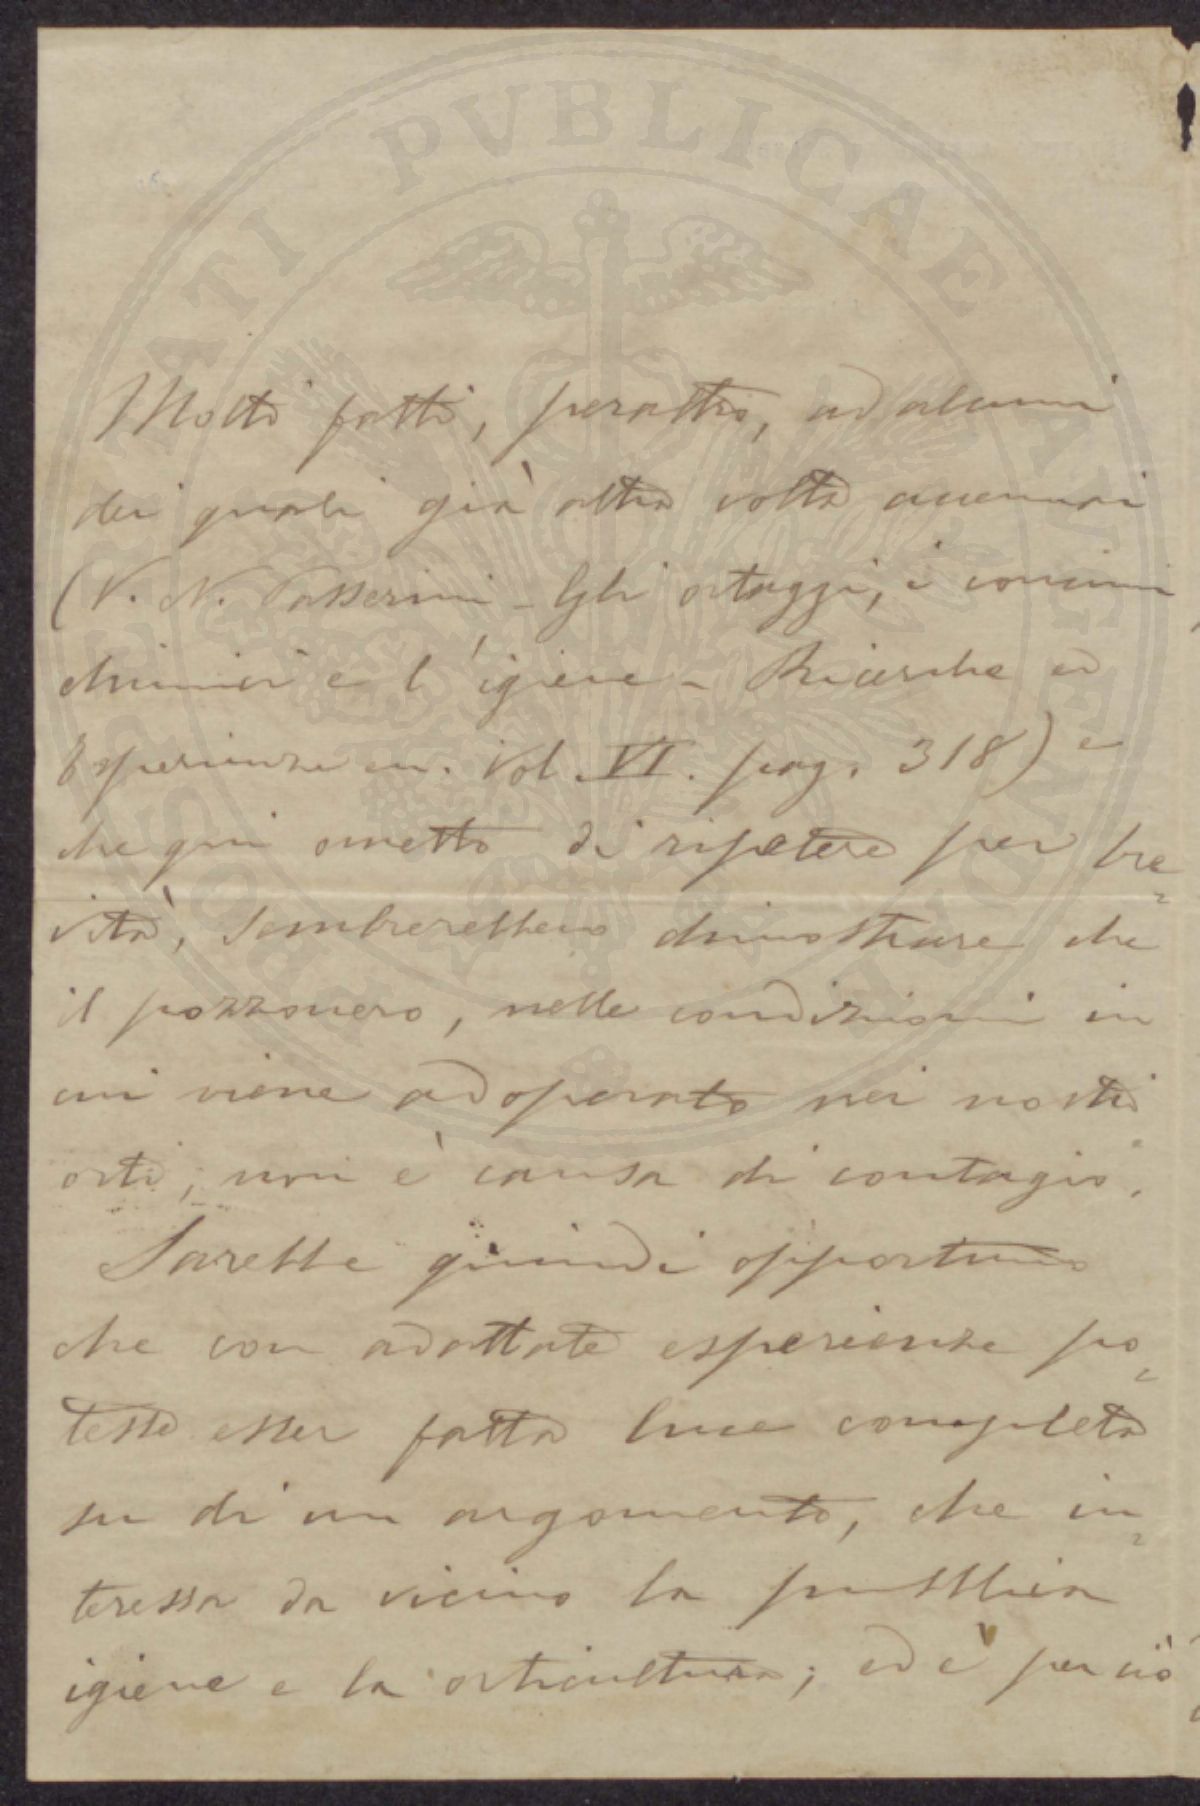 PVBLICAE
Molti fatti, peraltro, ad alcuni
dei quali già altra volta accennai
(V. N. Passerini - Gli ortaggi, i concimi
chimici e l'igiene - Ricerche ed
Esperienze ecc. Vol. VI. pag. 318) e
che qui ometto di ripetere per bre-
vità, sembrerebbero dimostrare che
il pozzonero, nelle condizioni in
cui viene adoperato nei nostri
orti, non è causa di contagio.
Sarebbe quindi opportuno
che con adattate esperienze po-
tesse esser fatta luce completa
su di un argomento, che in-
teressa da vicino la pubblica
igiene e la orticultura; ed è perciò